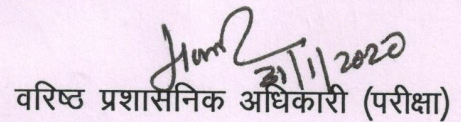 31/1/2020
वरिष्ठ प्रशासनिक अधिकारी (परीक्षा)